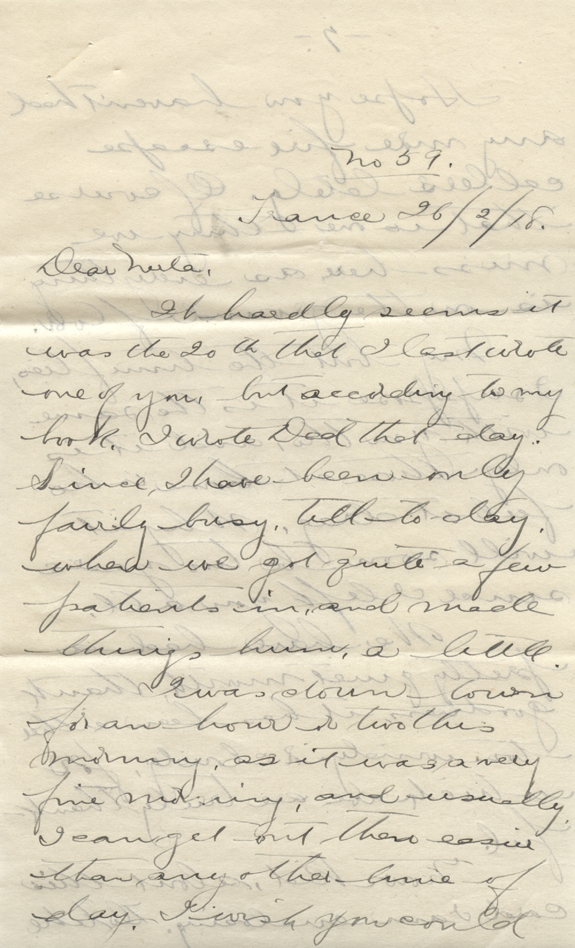 No 59.
France 26/2/18.
Dear Neeta,
It hardly seems it
was the 20th that I last wrote
one of you, but according to my
book, I wrote Dad that day.
Since, I have been only
fairly busy, till to day,
when we got quite a few
patients in, and made
things hum, a little.
I was down town
for an hour or two this
morning, as it was a very
fine morning, and usually
I can get out then easier
than any other time of
day. I wish you could